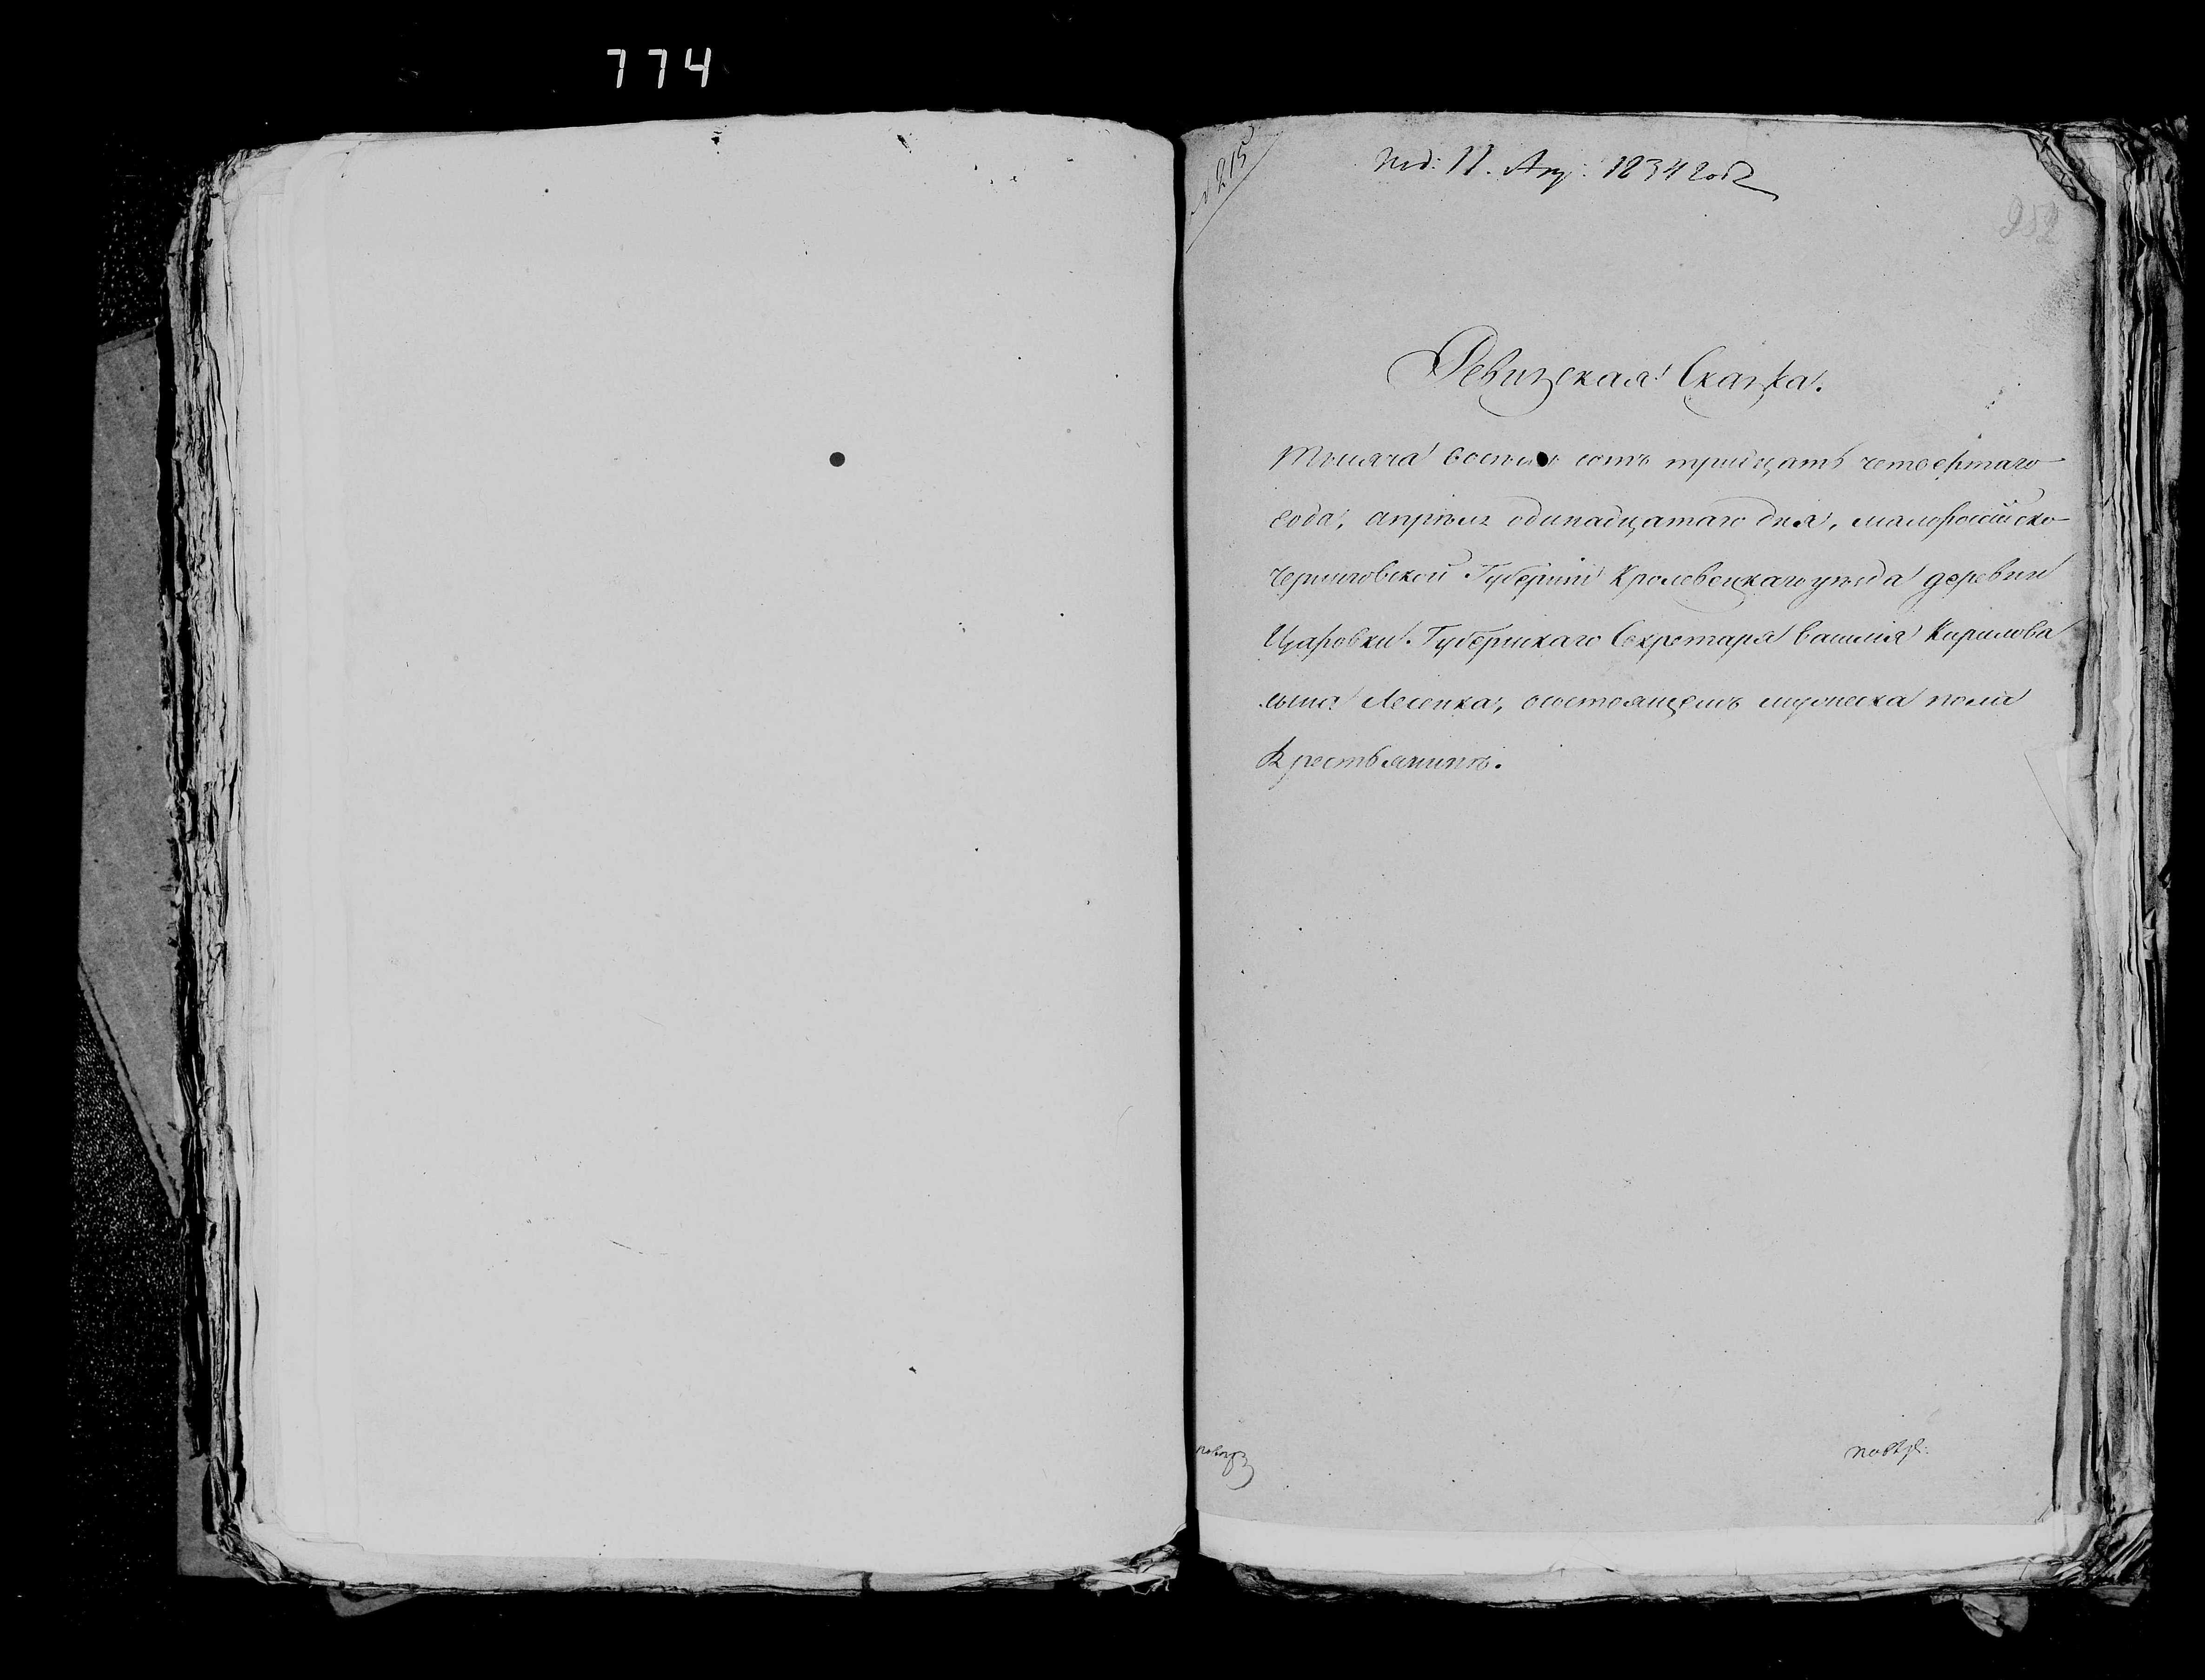 774
№ 215
Под: 11. Апр: 1834 года
252
Ревизская Сказка.
Тысяча восемь сотъ тридцать четвертаго
года, апреля одинадцатаго дня, малоросійско
Черниговской Губерніи Кролевецкаго уезда деревни
Царовки. Губернскаго Секретаря василія Кирилова
сына Лесенка, о состоящемъ мужеска пола
Крестьянинъ.